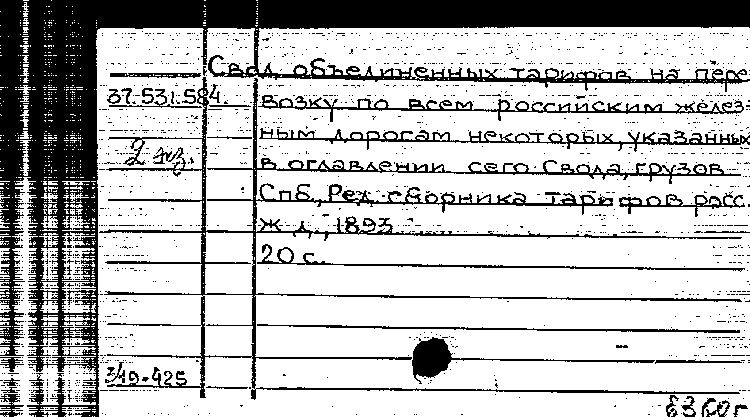 Свод объединенных тарифов на пере-
37.531.584. возку по всем российским желез-
ным дорогам некоторых, указанных
2 экз. в оглавлении сего Свода, грузов
Спб., Ред. сборника тарифов росс.
ж. д., 1893.
20 с.
349-425